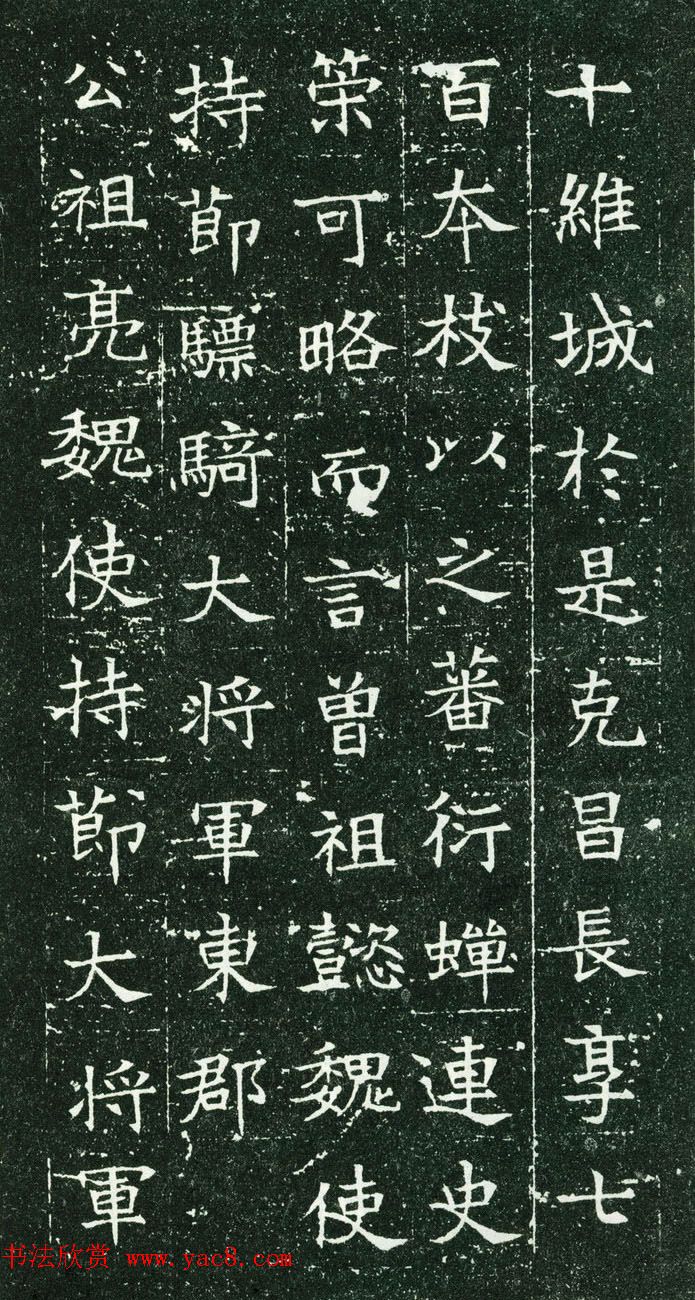 十維城於是克昌長享七
百本枝以之蕃衍蟬連史
策可略而言曾祖懿魏使
持節驃騎大將軍東郡
公祖亮魏使持節大將軍
书法欣赏 www.yac8.com